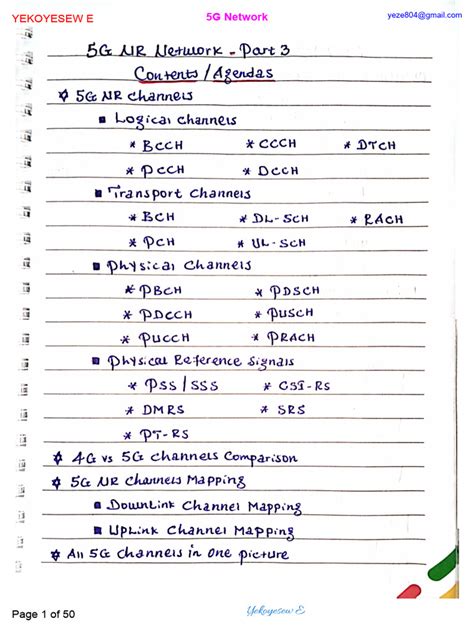 YEKOYESEW E 5G Network yeze804@gmail.com
5G NR Network - Part 3
Contents / Agendas
5G NR channels
Logical channels
* BCCH * CCCH * DTCH
* PCCH * DCCH
Transport Channels
* BCH * DL-SCH * RACH
* PCH * UL-SCH
Physical Channels
* PBCH * PDSCH
* PDCCH * PUSCH
* PUCCH * PRACH
Physical Reference Signals
* PSS / SSS * CSI-RS
* DMRS * SRS
* PT-RS
4G vs 5G channels Comparison
5G NR Channels Mapping
DownLink Channel Mapping
UpLink Channel Mapping
All 5G Channels in One picture
Page 1 of 50 Yekoyesew E